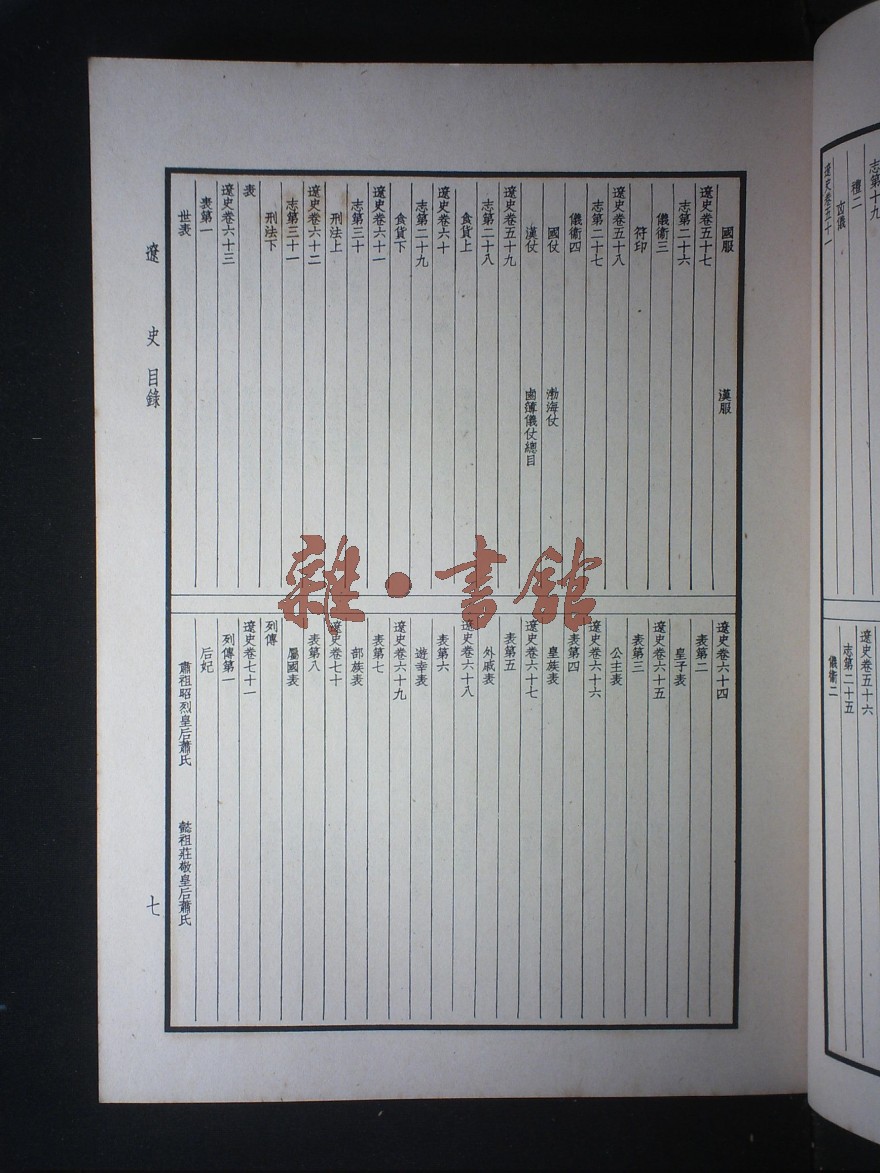 國服　漢服
遼史卷五十七
志第二十六
儀衞三
符印
遼史卷五十八
志第二十七
儀衞四
國仗　渤海仗
漢仗　鹵薄儀仗總目
遼史卷五十九
志第二十八
食貨上
遼史卷六十
志第二十九
食貨下
遼史卷六十一
志第三十
刑法上
遼史卷六十二
志第三十一
刑法下
表
遼史卷六十三
表第一
世表
遼史卷六十四
表第二
皇子表
遼史卷六十五
表第三
公主表
遼史卷六十六
表第四
皇族表
遼史卷六十七
表第五
外戚表
遼史卷六十八
表第六
遊幸表
遼史卷六十九
表第七
部族表
遼史卷七十
表第八
屬國表
列傳
遼史卷七十一
列傳第一
后妃
肅祖昭烈皇后蕭氏　懿祖莊敬皇后蕭氏
遼史目錄　七
志第十九
禮二
凶儀
遼史卷五十一
遼史卷五十六
志第二十五
儀衞二
雜·書館